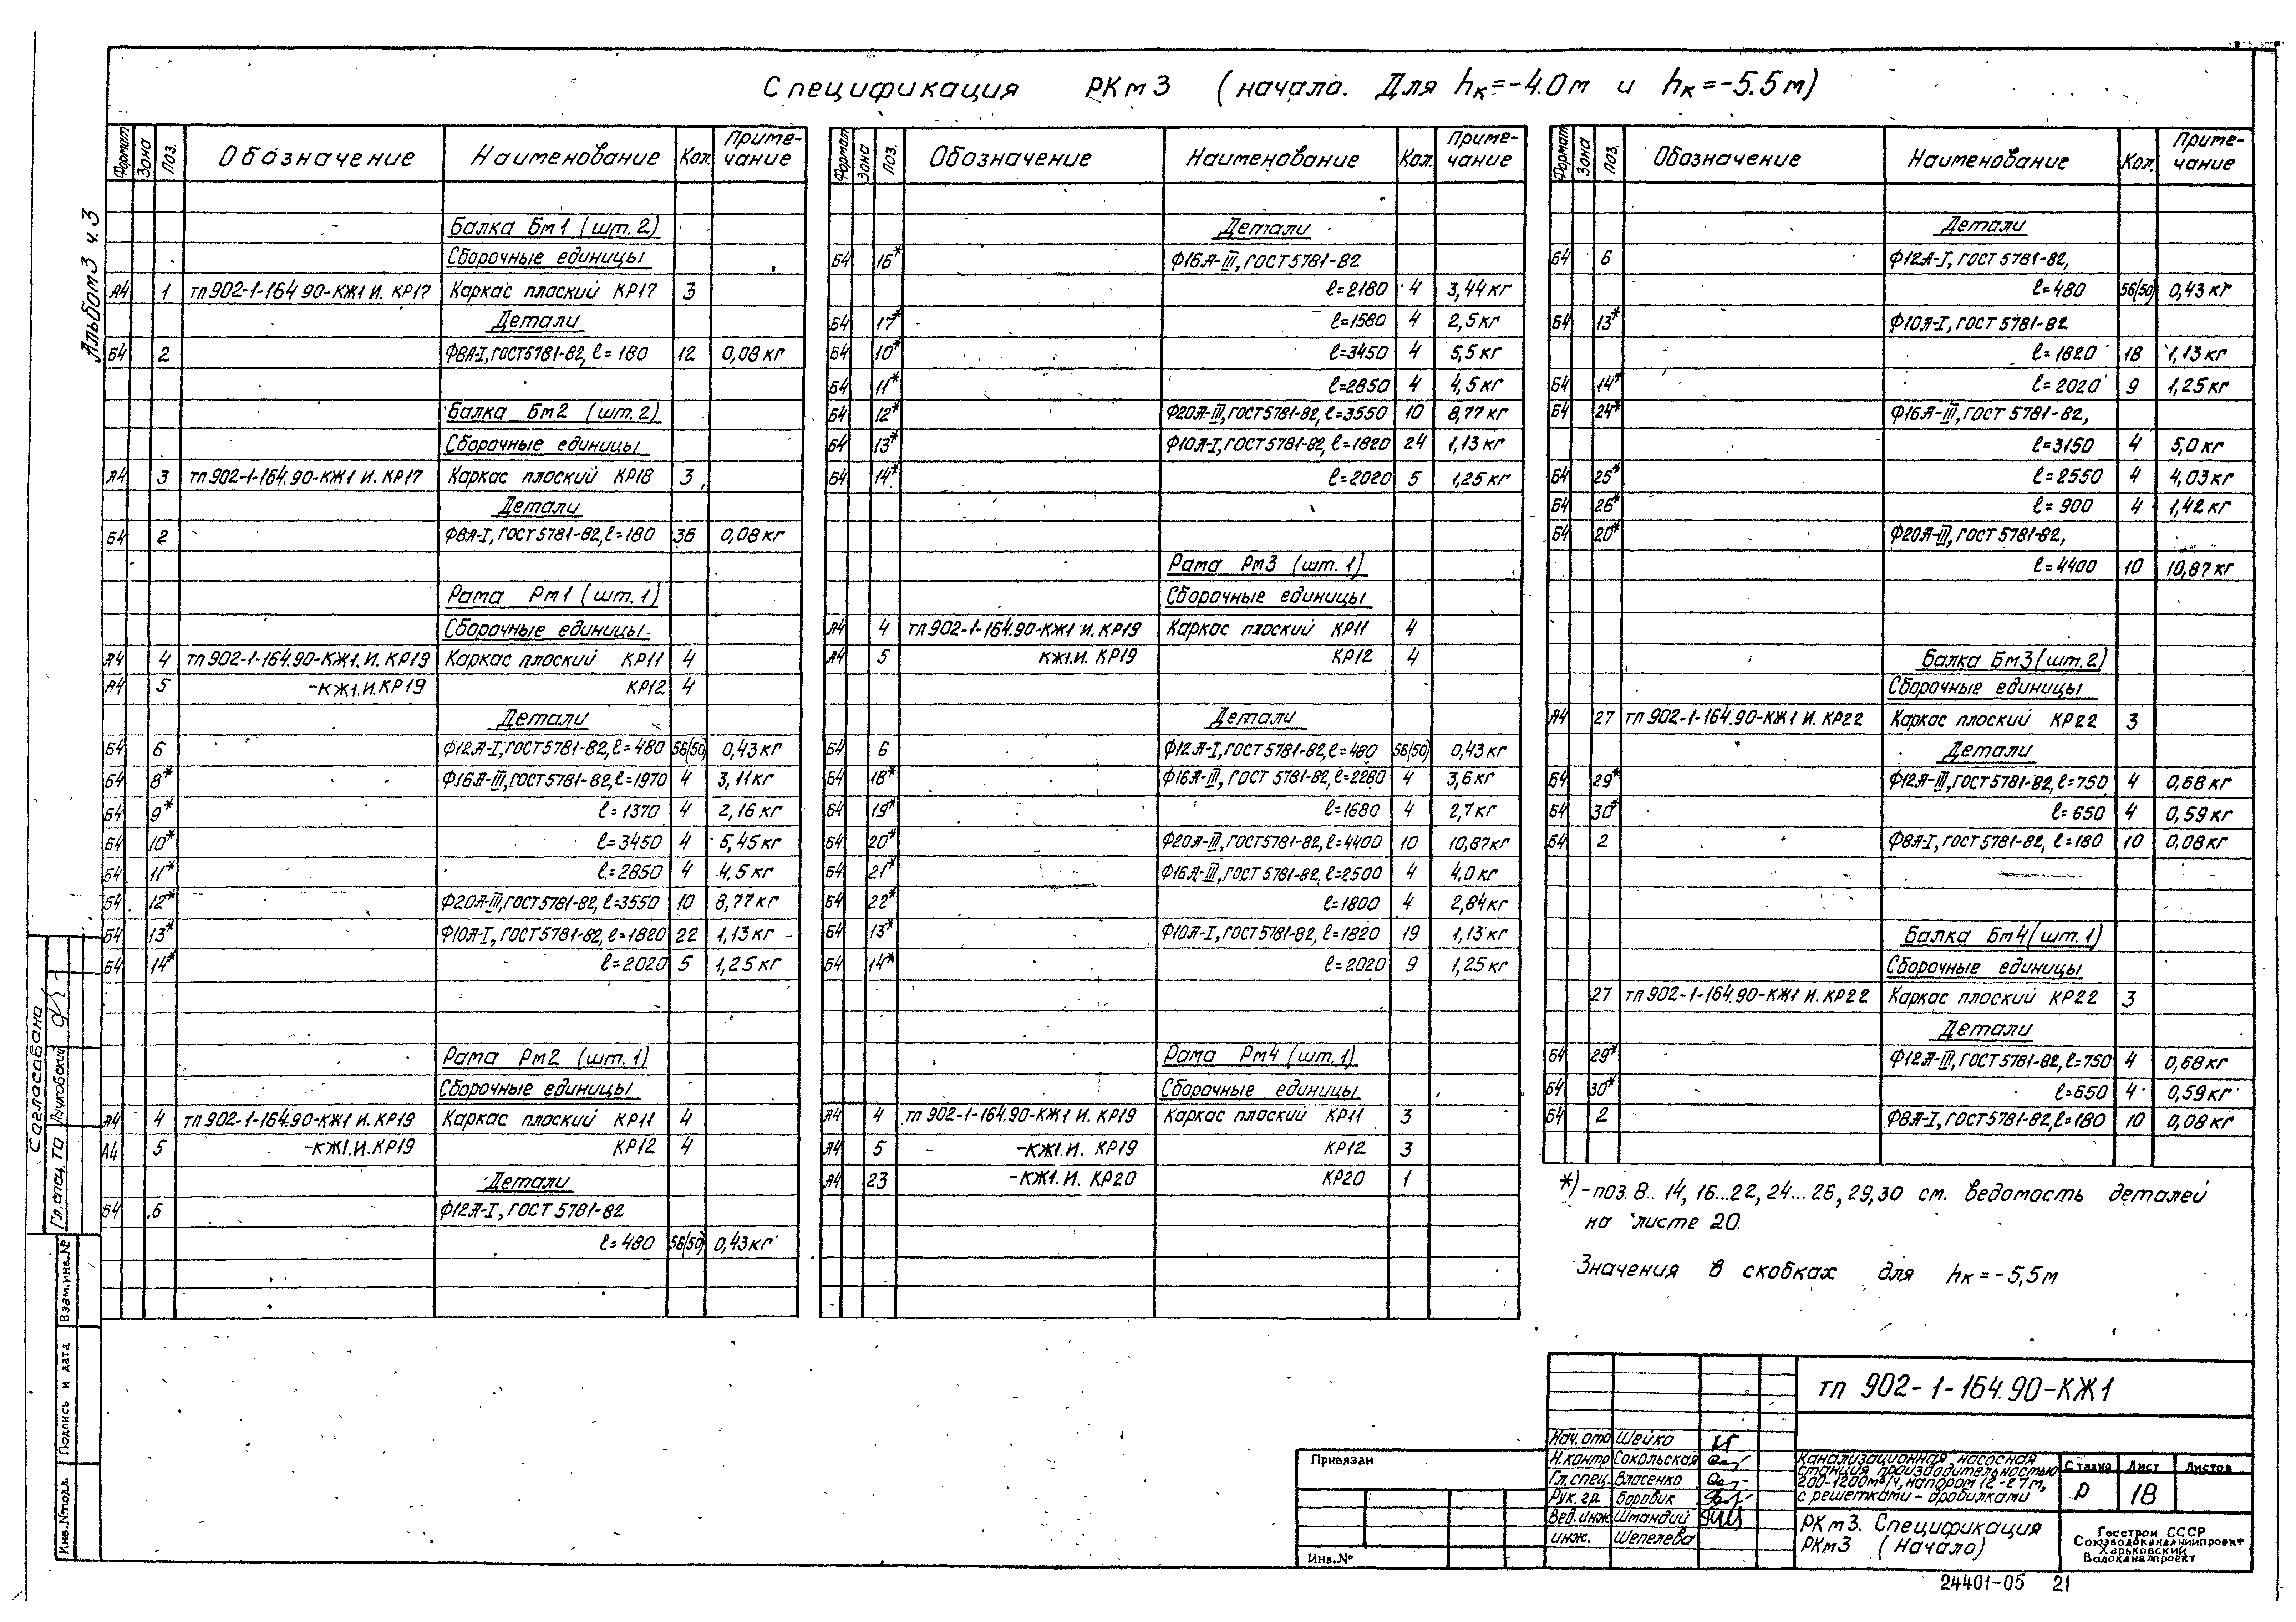 Спецификация РКм3 (начало. Для hк=-4.0м и hк=-5.5м)
Альбом 3 ч.3
Формат Зона Поз. Обозначение Наименование Кол. Примечание
Балка Бм1 (шт.2)
Сборочные единицы
А4 1 тп902-1-164.90-КЖ1 И. КР17 Каркас плоский КР17 3
Детали
Б4 2 Ф8А-I, ГОСТ5781-82, ℓ=180 12 0,08кг
Балка Бм2 (шт.2)
Сборочные единицы
А4 3 тп902-1-164.90-КЖ1 И. КР17 Каркас плоский КР18 3
Детали
Б4 2 Ф8А-I, ГОСТ5781-82, ℓ=180 36 0,08кг
Рама Рм1 (шт.1)
Сборочные единицы
А4 4 тп902-1-164.90-КЖ1. И. КР19 Каркас плоский КР11 4
А4 5 -КЖ1.И.КР19 КР12 4
Детали
Б4 6 Ф12А-I, ГОСТ5781-82, ℓ=480 56(50) 0,43кг
Б4 8* Ф16А-III, ГОСТ5781-82, ℓ=1970 4 3,11кг
Б4 9* ℓ=1370 4 2,16кг
Б4 10* ℓ=3450 4 5,45кг
Б4 11* ℓ=2850 4 4,5кг
Б4 12* Ф20А-III, ГОСТ5781-82, ℓ=3550 10 8,77кг
Б4 13* Ф10А-I, ГОСТ5781-82, ℓ=1820 22 1,13кг
Б4 14* ℓ=2020 5 1,25кг
Рама Рм2 (шт.1)
Сборочные единицы
А4 4 тп902-1-164.90-КЖ1 И. КР19 Каркас плоский КР11 4
А4 5 -КЖ1.И.КР19 КР12 4
Детали
Б4 6 Ф12А-I, ГОСТ 5781-82
ℓ=480 56(50) 0,43кг
Формат Зона Поз. Обозначение Наименование Кол. Примечание
Детали
Б4 16* Ф16А-III, ГОСТ5781-82
ℓ=2180 4 3,44кг
Б4 17* ℓ=1580 4 2,5кг
Б4 10* ℓ=3450 4 5,5кг
Б4 11* ℓ=2850 4 4,5кг
Б4 12* Ф20А-III, ГОСТ5781-82, ℓ=3550 10 8,77кг
Б4 13* Ф10А-I, ГОСТ5781-82, ℓ=1820 24 1,13кг
Б4 14* ℓ=2020 5 1,25кг
Рама Рм3 (шт.1)
Сборочные единицы
А4 4 тп902-1-164.90-КЖ1 И. КР19 Каркас плоский КР11 4
А4 5 КЖ1.И. КР19 КР12 4
Детали
Б4 6 Ф12А-I, ГОСТ5781-82, ℓ=480 56(50) 0,43кг
Б4 18* Ф16А-III, ГОСТ 5781-82, ℓ=2280 4 3,6кг
Б4 19* ℓ=1680 4 2,7кг
Б4 20* Ф20А-III, ГОСТ5781-82, ℓ=4400 10 10,87кг
Б4 21* Ф16А-III, ГОСТ5781-82, ℓ=2500 4 4,0кг
Б4 22* ℓ=1800 4 2,84кг
Б4 13* Ф10А-I, ГОСТ5781-82, ℓ=1820 19 1,13кг
Б4 14* ℓ=2020 9 1,25кг
Рама Рм4 (шт.1)
Сборочные единицы
А4 4 тп 902-1-164.90-КЖ1 И. КР19 Каркас плоский КР11 3
А4 5 -КЖ1.И. КР19 КР12 3
А4 23 -КЖ1.И. КР20 КР20 1
Формат Зона Поз. Обозначение Наименование Кол. Примечание
Детали
Б4 6 Ф12А-I, ГОСТ 5781-82,
ℓ=480 56(50) 0,43кг
Б4 13* Ф10А-I, ГОСТ5781-82
ℓ=1820 18 1,13кг
Б4 14* ℓ=2020 9 1,25кг
Б4 24* Ф16А-III, ГОСТ 5781-82,
ℓ=3150 4 5,0кг
Б4 25* ℓ=2550 4 4,03кг
Б4 26* ℓ=900 4 1,42кг
Б4 20* Ф20А-III, ГОСТ 5781-82,
ℓ=4400 10 10,87кг
Балка Бм3 (шт.2)
Сборочные единицы
А4 27 тп 902-1-164.90-КЖ1 И. КР22 Каркас плоский КР22 3
Детали
Б4 29* Ф12А-III, ГОСТ5781-82, ℓ=750 4 0,68кг
Б4 30* ℓ=650 4 0,59кг
Б4 2 Ф8А-I, ГОСТ5781-82, ℓ=180 10 0,08кг
Балка Бм4 (шт.1)
Сборочные единицы
27 тп 902-1-164.90-КЖ1 И. КР22 Каркас плоский КР22 3
Детали
Б4 29* Ф12А-III, ГОСТ5781-82, ℓ=750 4 0,68кг
Б4 30* ℓ=650 4 0,59кг
Б4 2 Ф8А-I, ГОСТ5781-82, ℓ=180 10 0,08кг
*) - поз. 8.. 14, 16...22, 24...26, 29,30 см. ведомость деталей
на листе 20.
Значения в скобках для hк=-5,5м
Согласовано
Гл.спец. ТО
Взам.инв.№
Подпись и дата
Инв.№подл.
Привязан
Инв.№
тп 902-1-164.90-КЖ1
Нач. отд Шейко
Н.контр Сокольская
Гл.спец. Власенко
Рук. гр. Боровик
Вед.инж. Шмандий
инж. Шепелева
Канализационная насосная
станция производительностью
200-1200м³/ч, напором 12-27м,
с решетками-дробилками
Стадия Лист Листов
Р 18
РКм3. Спецификация
РКм3 (Начало)
Госстрой СССР
Союзводоканалниипроект
Харьковский
Водоканалпроект
24401-05 21